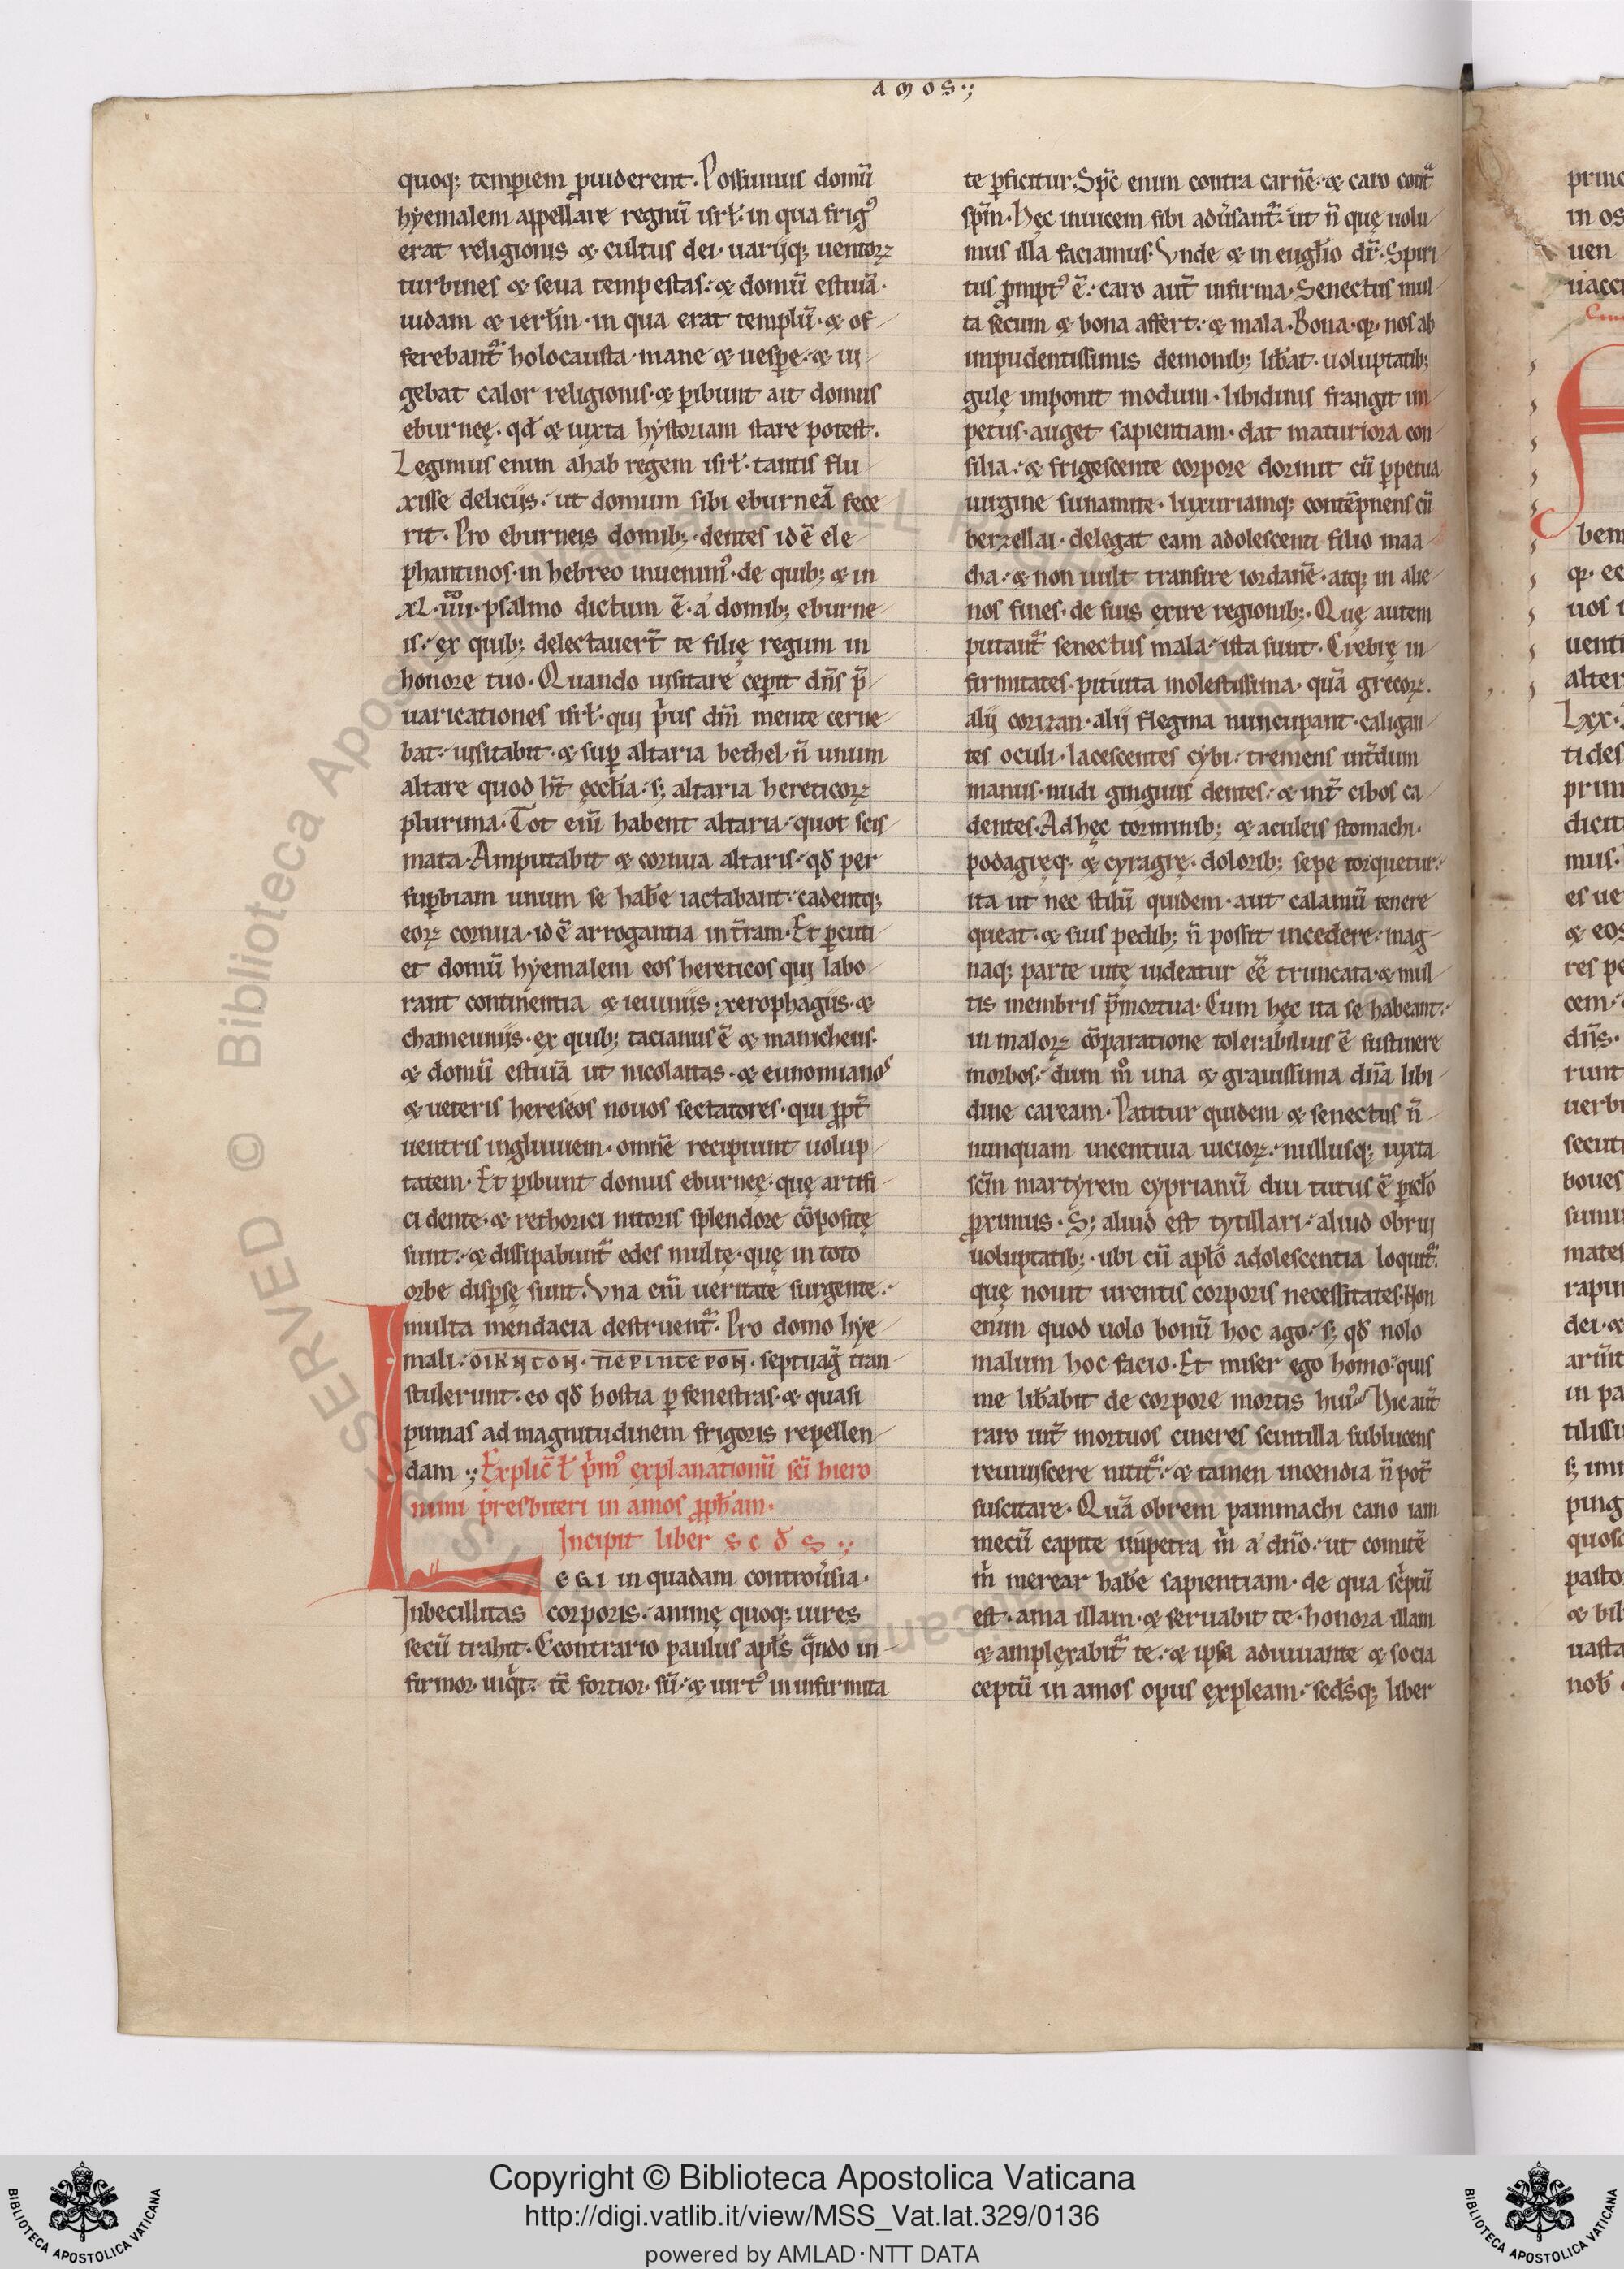 amos·;
quoq; temperiem ꝓuiderent. Possumus domũ
hyemalem appellare regnũ isrł· in qua frigꝰ
erat religionis & cultus dei· uarijq; uentoꝝ
turbines & seua tempestas· & domũ estiuã·
iudam & ierłm· in qua erat templũ· & of-
ferebant᷑ holocausta· mane & uespe· & ui-
gebat calor religionis· & ꝑibunt ait domus
eburneę· qđ & iuxta hystoriam stare potest.
Legimus enim ahab regem isrł· tantis flu-
xisse delicijs· ut domum sibi eburneã fece
rit. Pro eburneis domib;· dentes id ẽ ele-
phantinos· in hebreo inuenimꝰ· de quib; & in
xl·iiiito·psalmo dictum ẽ· a domib; eburne-
is· ex quib; delectauert̃ te filię regum in
honore tuo. Quando uisitare ceperit dñs p̃-
uaricationes isrł· qui pͥus dm̃ mente cerne-
bat· uisitabit· & suꝑ altaria bethel· ñ unum
altare quod ht̃ ęcclia· s; altaria hereticoꝝ
plurima. Tot eni᷑ habent altaria· quot scis-
mata. Amputabit & cornua altaris· qđ per
suꝑbiam unum se habe iactabant· cadentq;
eoꝝ cornua· id ẽ arrogantia in t̃ram. Et ꝑcuti-
et domũ hyemalem eos hereticos qui labo-
rant continentia & ieiunijs· xerophagijs· &
chameunijs· ex quib; tacianus ẽ & manicheus·
& domũ estiuã ut nicolaitas· & eunomianos
& ueteris hereseos nouos sectatores· qui ꝓpt̃
uentris ingluuiem· omnẽ recipiunt uolup-
tatem. Et ꝑibunt domus eburneę· quę artifi-
ci dente· & rethorici nitoris splendore cõpositę
sunt· & dissipabunt᷑ edes multę· quę in toto
orbe disꝑsę sunt. Vna eni᷑ ueritate surgente·
multa mendacia destruent᷑. Pro domo hye-
mali· ΟΙΚΗΤΟΗ· ΠΕΡΙΠΤΕΡΟΗ· septuag̃ tran-
stulerunt· eo qđ hostia ꝑ fenestras· & quasi
pinnas ad magnitudinem frigoris repellen-
dam ·; Explic̃ ł pͥmꝰ explanationũ sc̃i hiero
nimi presbiteri in amos ꝓphãm·
Incipit liber scđs ·;
LEGI in quadam controũsia·
Inbecillitas corporis· animę quoq; uires
secũ trahit. Econtrario paulus apłs q̃ndo in-
firmor· inqͥt· tc̃ fortior sũ· & uirtꝰ in infirmita
te ꝑficitur. Spc̃ enim contra carnẽ· & caro cont᷑
spm̃. Hęc inuicem sibi adũsant᷑· ut ñ quę uolu-
mus illa faciamus. Vnde & in euglio dr̃. Spiri-
tus ꝓmptꝰ ẽ· caro aut̃ infirma. Senectus mul-
ta secum & bona affert· & mala. Bona· qꝫ nos ab
impudentissimis demonib; libat· uoluptatib;
gulę imponit modum· libidinis frangit im-
petus· auget sapientiam· dat maturiora con-
silia· & frigescente corpore dormit cũ ꝑpetua
uirgine sunamite· luxuriamq; contẽpnens cũ
berzellai· delegat eam adolescenti filio maa-
cha· & non uult transire iordanẽ· atq; in alie-
nos fines· de suis exire regionib;. Quę autem
putant᷑ senectus mala· ista sunt. Crebrę in-
firmitates· pituita molestissima· quã grecoꝝ·
alij corizan· alij flegma nuncupant· caligan-
tes oculi· lacescentes cybi· tremens int̃dum
manus· nudi gingiuis dentes· & int̃ cibos ca-
dentes. Ad hęc torminib; & aculeis stomachi·
podagręq; & cyragrę· dolorib; sepe torquetur·
ita ut nec stilũ quidem· aut calamũ tenere
queat· & suis pedib; ñ possit incedere· mag-
naq; parte uitę uideatur eẽ truncata· & mul-
tis membris p̃mortua. Cum hęc ita se habeant·
in maloꝝ cõparatione tolerabilius ẽ sustinere
morbos· dum mͦ una & grauissima dña libi-
dine caream. Patitur quidem & senectus ñ-
nunquam incentiua uicioꝝ· nullusq; iuxta
scm̃ martyrem cyprianũ diu tutus ẽ ꝑicło
ꝓximus. S; aliud est tytillari· aliud obrui
uoluptatib;· ubi cũ aplo adolescentia loquit᷑·
quę nouit urentis corporis necessitates. Non
enim quod uolo bonũ hoc ago· s; qđ nolo
malum hoc facio. Et miser ego homo· quis
me libabit de corpore mortis huiꝰ. Hic aut̃
raro int̃ mortuos cineres scintilla sublucens
reuiuiscere nitit᷑· & tamen incendia ñ pot̃
suscitare. Quã obrem pammachi cano iam
mecũ capite impetra mͥ a dño· ut comitẽ
mͥ merear habe sapientiam· de qua scͥptũ
est· ama illam· & seruabit te· honora illam
& amplexabit᷑ te· & ipsa adiuuante & socia
ceptũ in amos opus expleam· scdsq; liber
Copyright © Biblioteca Apostolica Vaticana
http://digi.vatlib.it/view/MSS_Vat.lat.329/0136
powered by AMLAD·NTT DATA
BIBLIOTECA APOSTOLICA VATICANA
BIBLIOTECA APOSTOLICA VATICANA